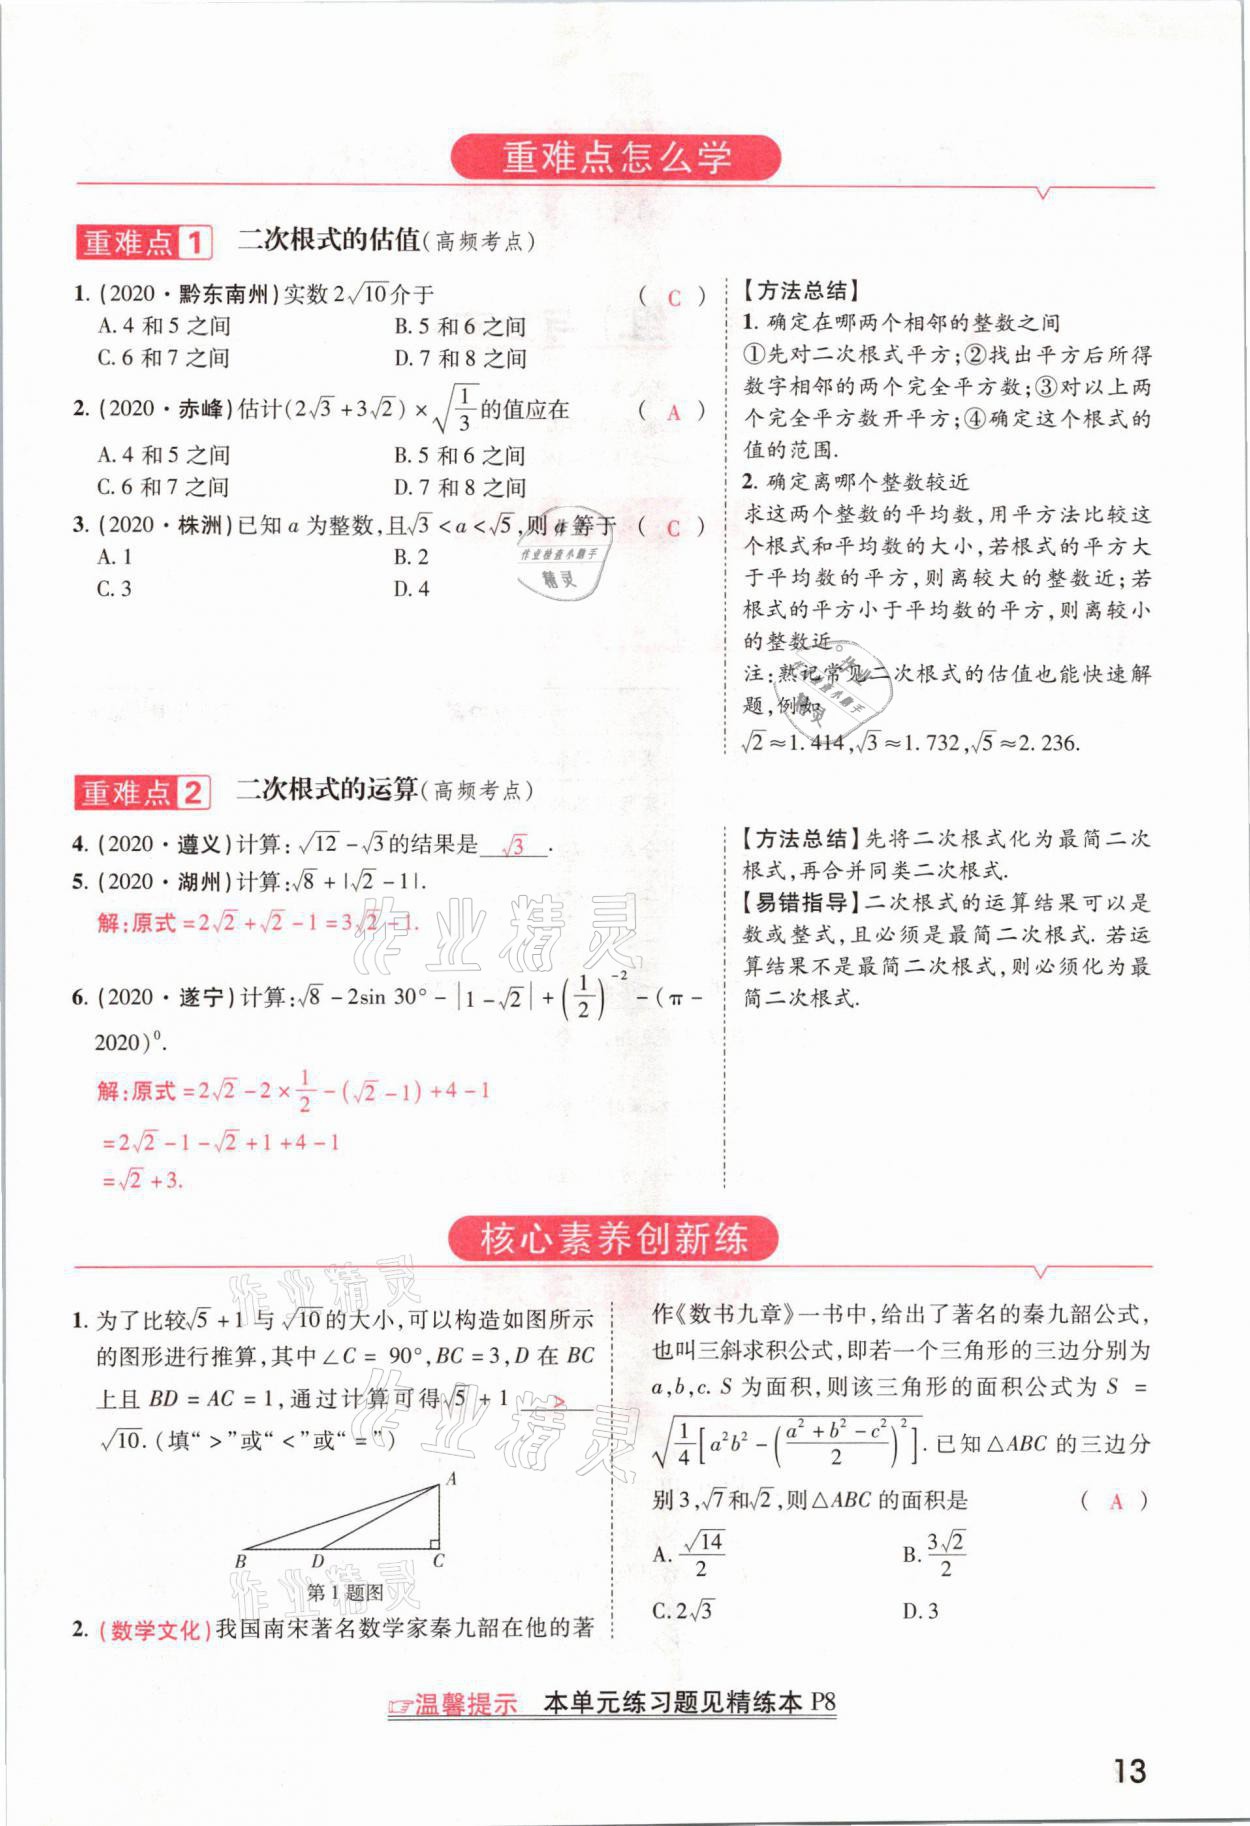 重难点怎么学
重难点1 二次根式的估值(高频考点)
1. (2020·黔东南州)实数2√10介于 ( C )
A. 4 和 5 之间 B. 5 和 6 之间
C. 6 和 7 之间 D. 7 和 8 之间
2. (2020·赤峰)估计(2√3+3√2)×√(1/3)的值应在 ( A )
A. 4 和 5 之间 B. 5 和 6 之间
C. 6 和 7 之间 D. 7 和 8 之间
3. (2020·株洲)已知 a 为整数,且√3<a<√5,则 a 等于 ( C )
A. 1 B. 2
C. 3 D. 4
【方法总结】
1. 确定在哪两个相邻的整数之间
①先对二次根式平方;②找出平方后所得
数字相邻的两个完全平方数;③对以上两
个完全平方数开平方;④确定这个根式的
值的范围.
2. 确定离哪个整数较近
求这两个整数的平均数,用平方法比较这
个根式和平均数的大小,若根式的平方大
于平均数的平方,则离较大的整数近;若
根式的平方小于平均数的平方,则离较小
的整数近。
注:熟记常见二次根式的估值也能快速解
题,例如
√2≈1.414,√3≈1.732,√5≈2.236.
重难点2 二次根式的运算(高频考点)
4. (2020·遵义)计算:√12-√3的结果是 √3 .
5. (2020·湖州)计算:√8+|√2-1|.
解:原式=2√2+√2-1=3√2-1.
6. (2020·遂宁)计算:√8-2sin 30°-|1-√2|+(1/2)⁻²-(π-
2020)⁰.
解:原式=2√2-2×1/2-(√2-1)+4-1
=2√2-1-√2+1+4-1
=√2+3.
【方法总结】先将二次根式化为最简二次
根式,再合并同类二次根式.
【易错指导】二次根式的运算结果可以是
数或整式,且必须是最简二次根式. 若运
算结果不是最简二次根式,则必须化为最
简二次根式.
核心素养创新练
1. 为了比较√5+1与√10的大小,可以构造如图所示
的图形进行推算,其中∠C=90°,BC=3,D 在 BC
上且 BD=AC=1,通过计算可得√5+1 A
√10.(填“>”或“<”或“=”)
A
B D C
第 1 题图
2. (数学文化)我国南宋著名数学家秦九韶在他的著
作《数书九章》一书中,给出了著名的秦九韶公式,
也叫三斜求积公式,即若一个三角形的三边分别为
a,b,c. S 为面积,则该三角形的面积公式为 S =
√(1/4[a²b²-((a²+b²-c²)/2)²]). 已知△ABC 的三边分
别3,√7和√2,则△ABC 的面积是 ( A )
A. √14/2 B. 3√2/2
C. 2√3 D. 3
温馨提示 本单元练习题见精练本 P8
13
作业
作业检查小助手
精灵
作业
作业检查小助手
精灵
作业精灵
作业精灵
作业精灵
作业精灵